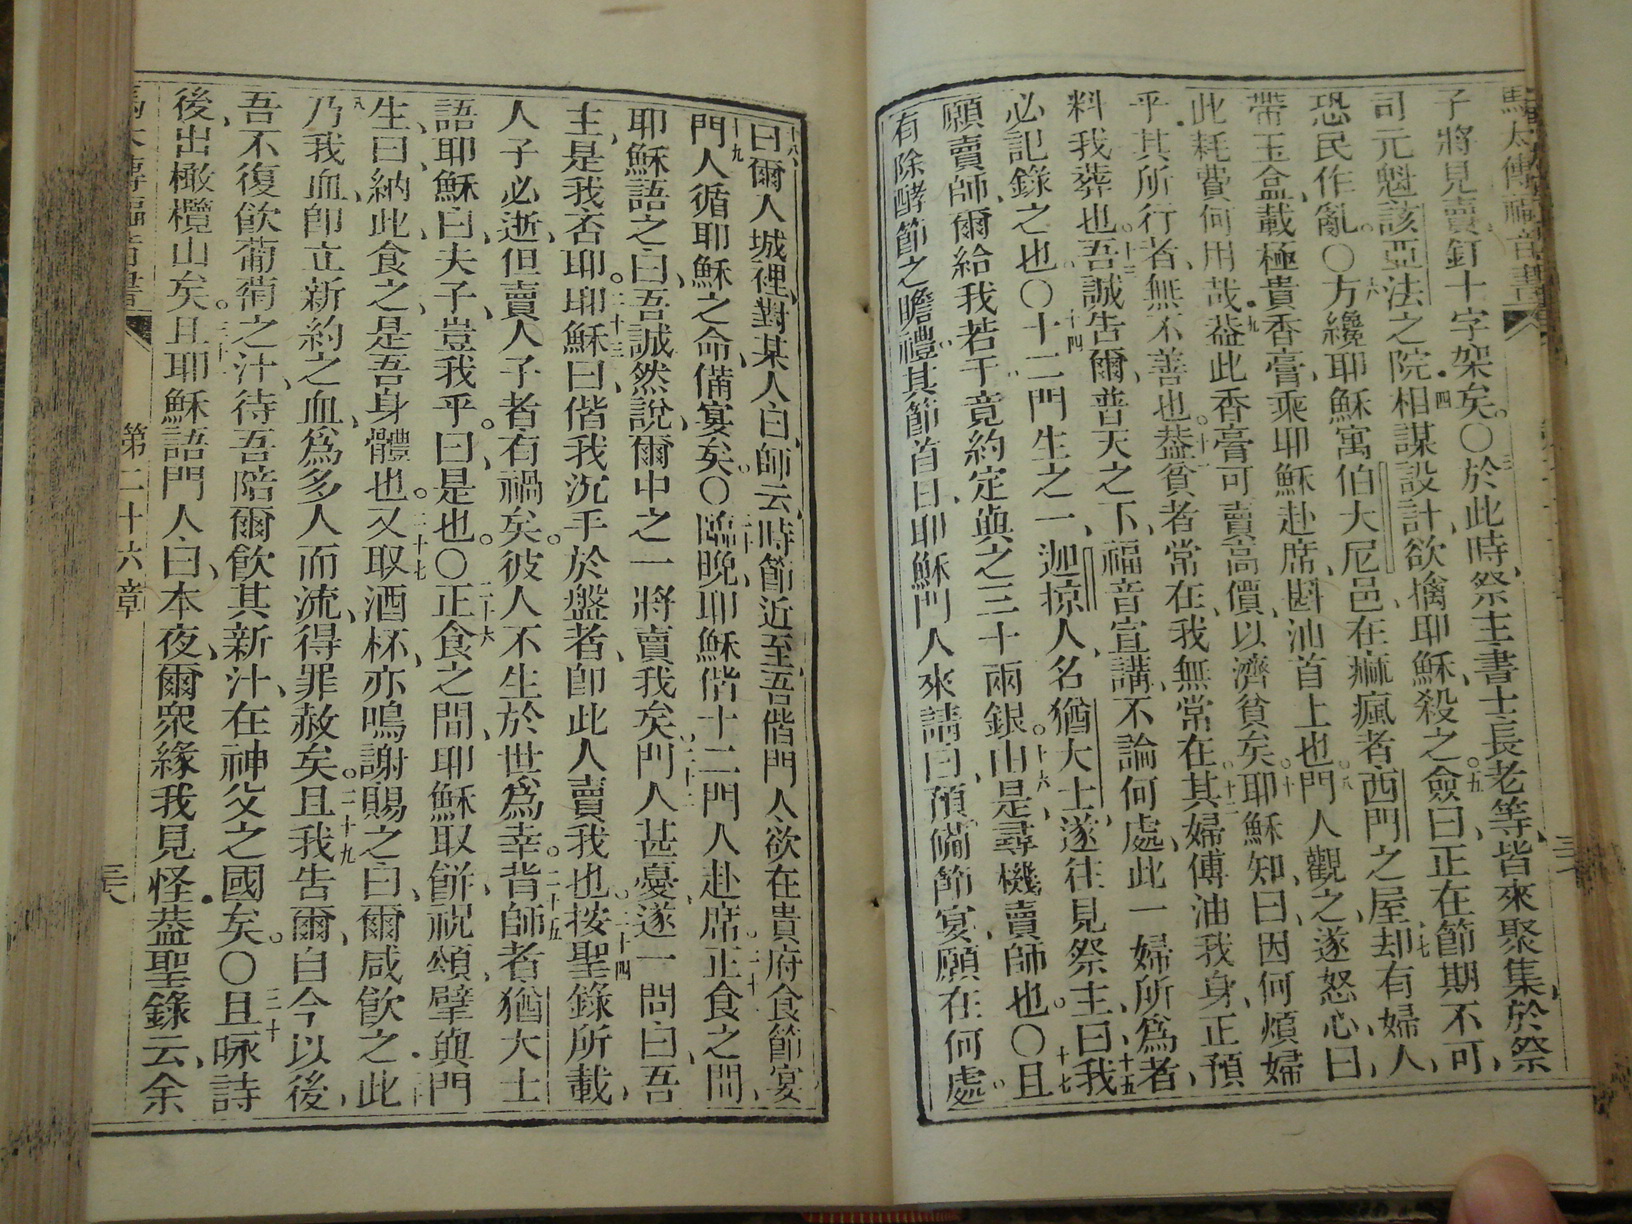 馬太傳福音書
子將見賣釘十字架矣。〇於此時祭主書士長老等、皆來聚集於祭
司元魁該亞法之院、四相謀設計、欲擒耶穌殺之、五僉曰、正在節期不可、
恐民作亂。〇六方纔耶穌寓伯大尼邑、在痲瘋者西門之屋、七却有婦人、
帶玉盒載極貴香膏、乘耶穌赴席、斟油首上也。八門人觀之、遂怒心曰、
此耗費何用哉、九葢此香膏可賣高價、以濟貧矣。十耶穌知、曰、因何煩婦
乎、其所行者、無不善也。十一葢貧者常在、我無常在、十二其婦傅油我身、正預
料我葬也。十三吾誠告爾、普天之下、福音宣講、不論何處、此一婦所爲者、
必記錄之也。〇十四十二門生之一、迦掠人名猶大士、遂往見祭主曰、十五我
願賣師、爾給我若干、竟約定與之三十兩銀。十六由是尋機賣師也。〇十七且
有除酵節之瞻禮、其節首日、耶穌門人來請曰、預備節宴、願在何處。
十八曰爾人城裡、對某人白、師云、時節近至、吾偕門人、欲在貴府食節宴
十九門人循耶穌之命、備宴矣。〇二十臨晚、耶穌偕十二門人赴席。二十一正食之間、
耶穌語之曰、吾誠然說、爾中之一將賣我矣、二十二門人甚憂、遂一一問曰、吾
主、是我否耶。二十三耶穌曰、偕我沉手於盤者、卽此人賣我也。二十四按聖錄所載、
人子必逝、但賣人子者有禍矣。彼人不生於世、爲幸。二十五背師者猶大士
語耶穌曰、夫子、豈我乎。曰、是也。〇二十六正食之間、耶穌取餅、祝頌、擘與門
生曰、納此食之、是吾身體也。二十七又取酒杯、亦鳴謝賜之曰、爾咸飲之、二十八此
乃我血、卽立新約之血、爲多人而流、得罪赦矣。二十九且我告爾、自今以後、
吾不復飲葡萄之汁、待吾陪爾飲其新汁、在神父之國矣。〇三十且咏詩
後、出橄欖山矣。三十一且耶穌語門人曰、本夜、爾衆緣我見怪、葢聖錄云、余
馬太傳福音書 第二十六章 三六